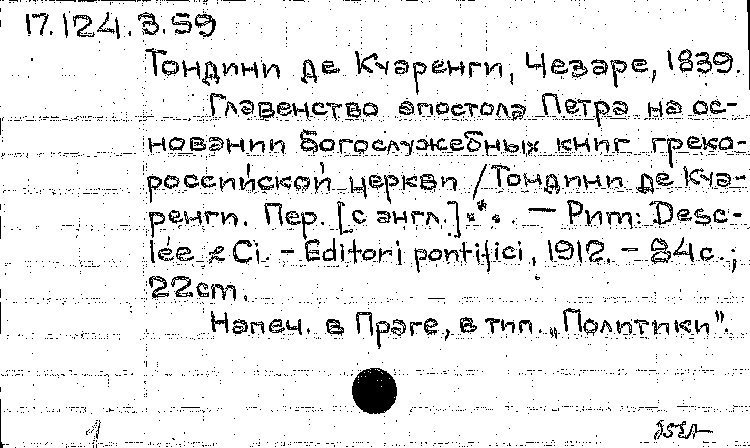 17.124.3.59
Тондини де Куаренги, Чезаре, 1839.
Главенство апостола Петра на ос-
новании богослужебных книг греко-
российской церкви / Тондини де Куа-
ренги. Пер. [с англ.] *. — Рим: Desc-
lée & Ci. - Editori pontifici, 1912. - 84 с.;
22cm.
Напеч. в Праге, в тип. „Политики".
1